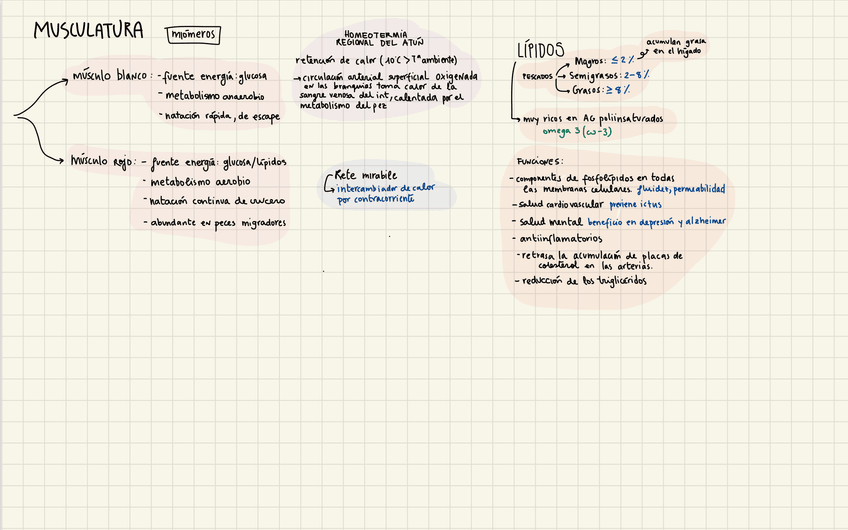 MUSCULATURA
miómeros
músculo blanco: - fuente energía: glucosa
- metabolismo anaerobio
- natación rápida, de escape
músculo rojo: - fuente energía: glucosa/lípidos
- metabolismo aerobio
- natación continua de crucero
- abundante en peces migradores
HOMEOTERMIA
REGIONAL DEL ATÚN
retención de calor (10°C > Tª ambiente)
→ circulación arterial superficial oxigenada
en las branquias toma calor de la
sangre venosa del int, calentada por el
metabolismo del pez
Rete mirabile
intercambiador de calor
por contracorriente
LÍPIDOS
PESCADOS
Magros: ≤2%
acumulan grasa
en el hígado
Semigrasos: 2-8%
Grasos: ≥8%
muy ricos en AG poliinsaturados
omega 3 (ω-3)
FUNCIONES:
- componentes de fosfolípidos en todas
las membranas celulares. fluidez, permeabilidad
- salud cardiovascular previene ictus
- salud mental beneficio en depresión y alzheimer
- antiinflamatorios
- retrasa la acumulación de placas de
colesterol en las arterias.
- reducción de los triglicéridos